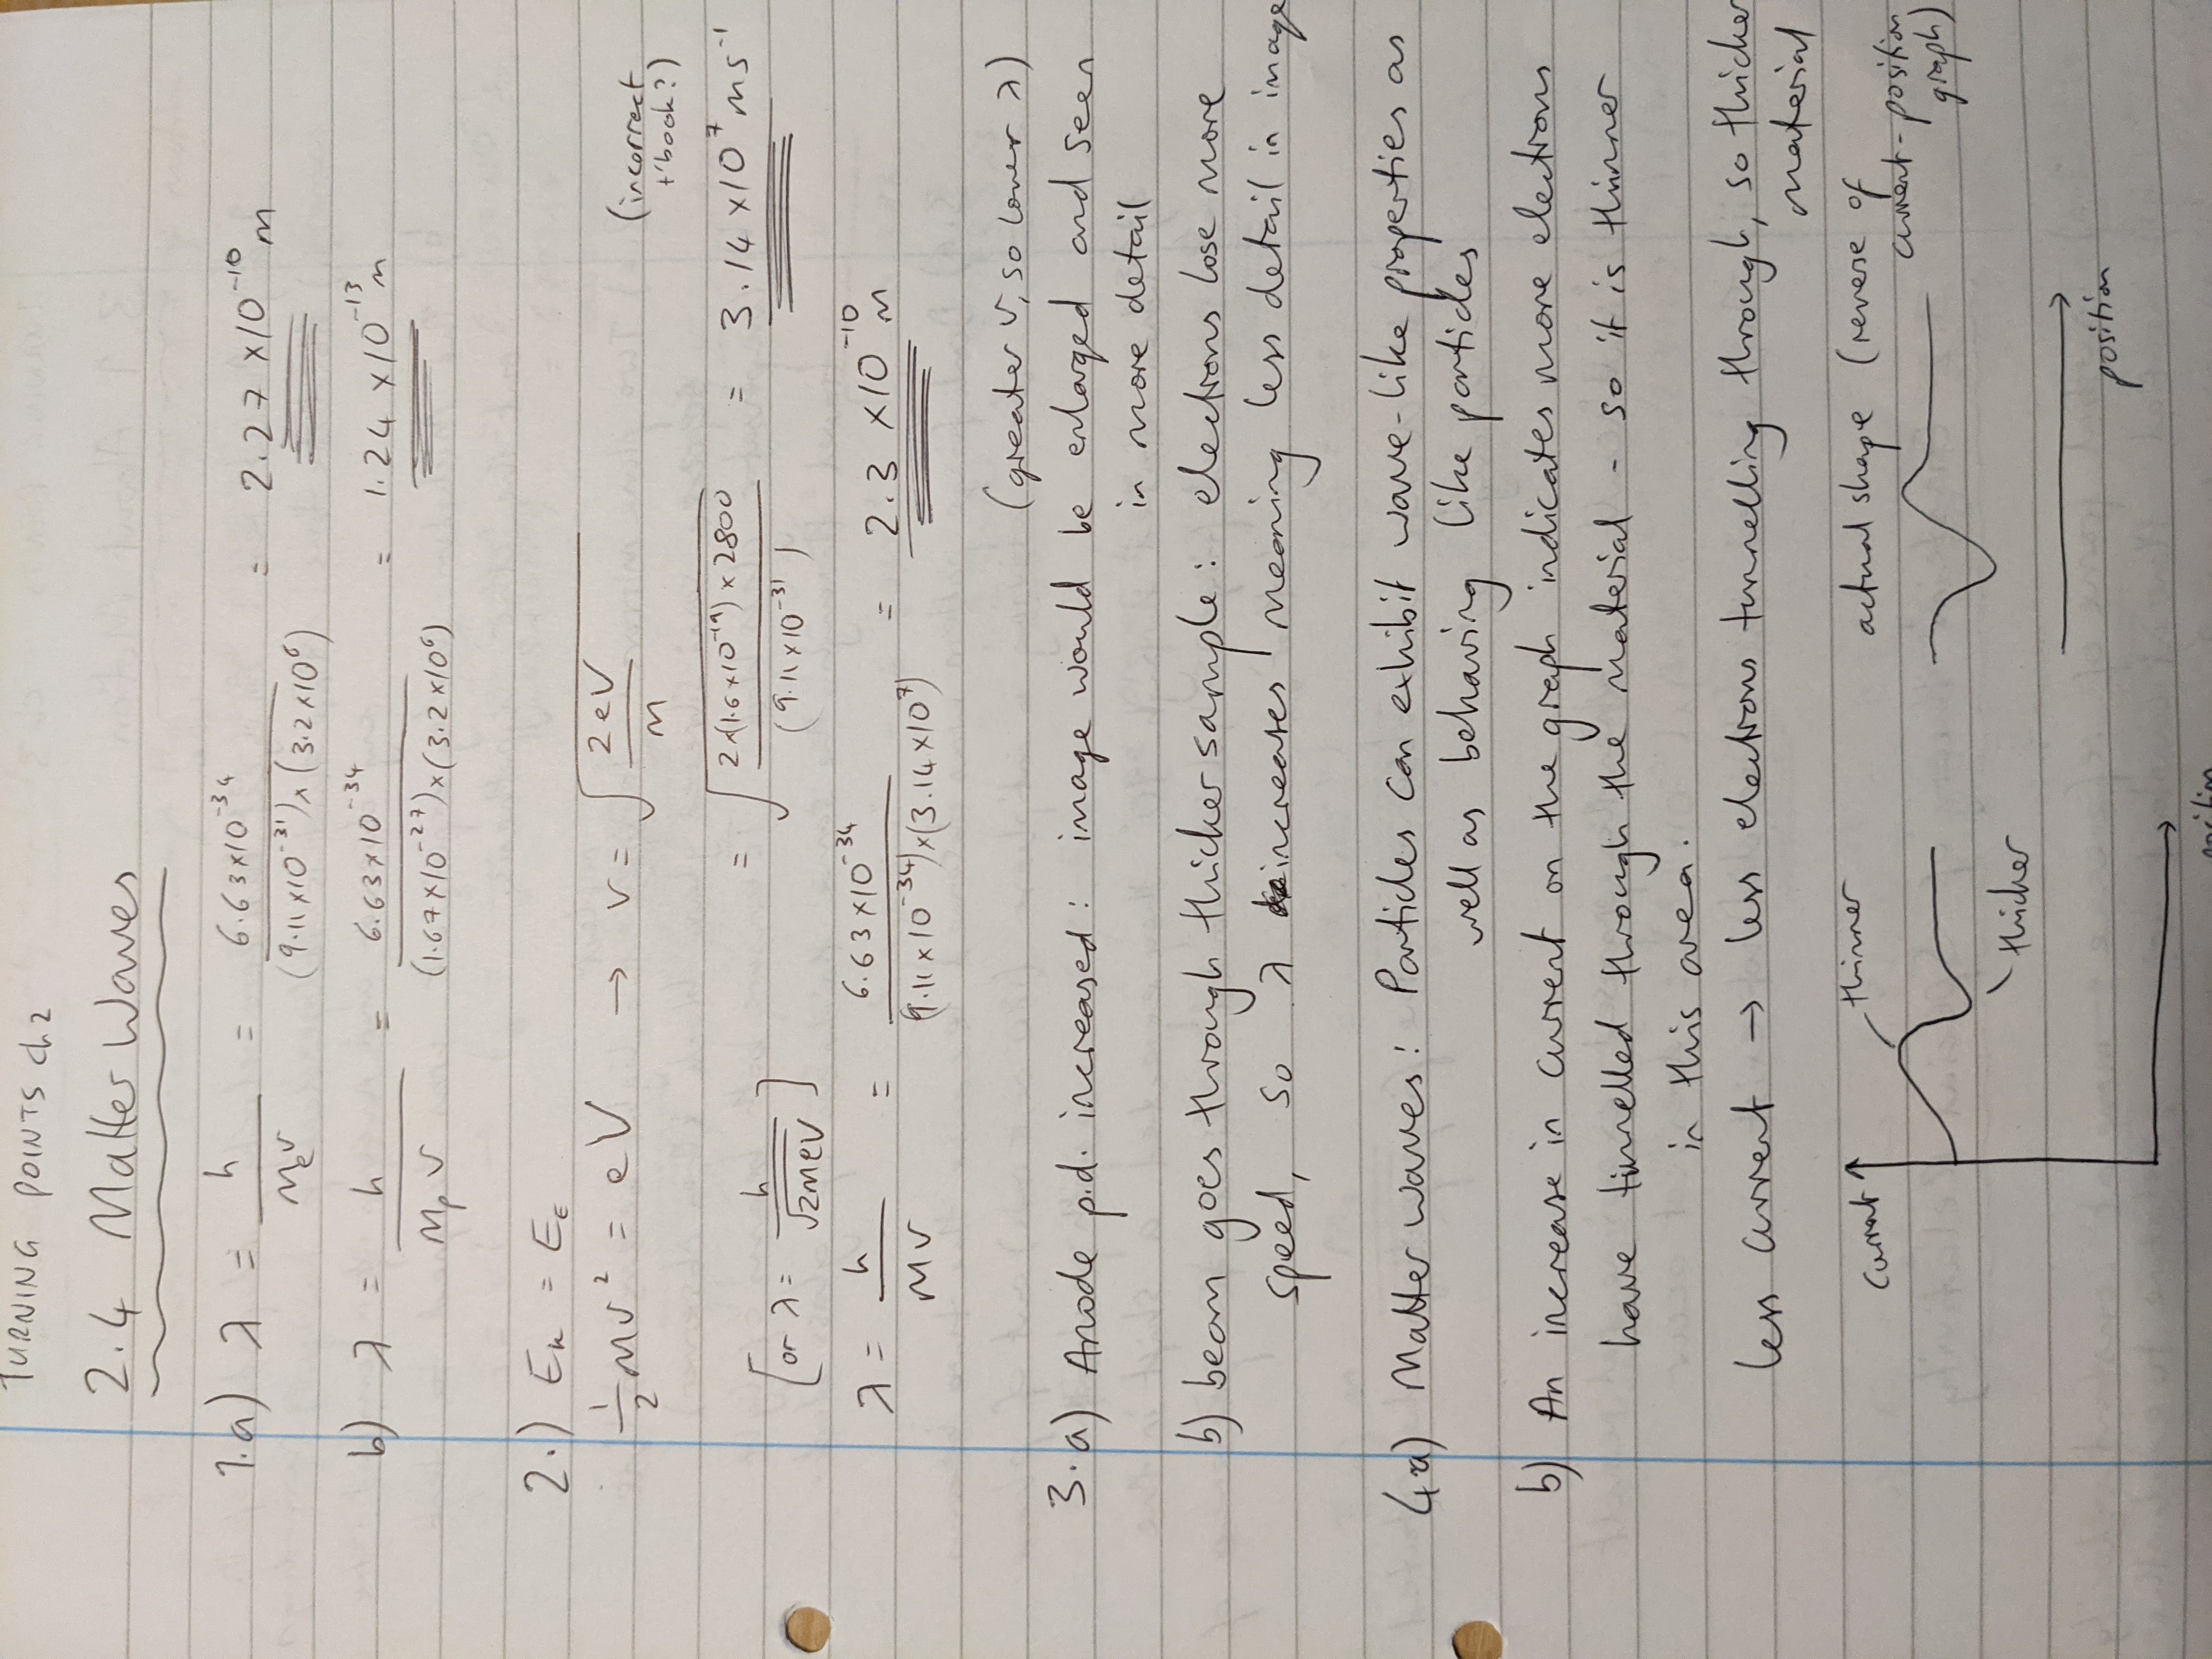 TURNING POINTS Ch2
2.4 Matter Waves
1.a) λ = h / mₑv = 6.63×10⁻³⁴ / (9.11×10⁻³¹)×(3.2×10⁶) = 2.27×10⁻¹⁰ m
b) λ = h / mₚv = 6.63×10⁻³⁴ / (1.67×10⁻²⁷)×(3.2×10⁶) = 1.24×10⁻¹³ m
2.) Eₖ = E_E
½mv² = eV → v = √(2eV / m) (incorrect t'book?)
= √(2×(1.6×10⁻¹⁹)×2800 / (9.11×10⁻³¹)) = 3.14×10⁷ ms⁻¹
[or λ = h / √2meV]
λ = h / mv = 6.63×10⁻³⁴ / (9.11×10⁻³⁴)×(3.14×10⁷) = 2.3×10⁻¹⁰ m
(greater v, so lower λ)
3.a) Anode p.d. increased: image would be enlarged and seen
in more detail
b) beam goes through thicker sample: electrons lose more
speed, so λ increases meaning less detail in image
4a) Matter waves: Particles can exhibit wave-like properties as
well as behaving like particles
b) An increase in current on the graph indicates more electrons
have tunnelled through the material - so it is thinner
in this area.
less current → less electrons tunnelling through, so thicker
material
actual shape (reverse of
current-position
graph)
current
thinner
thicker
position
position